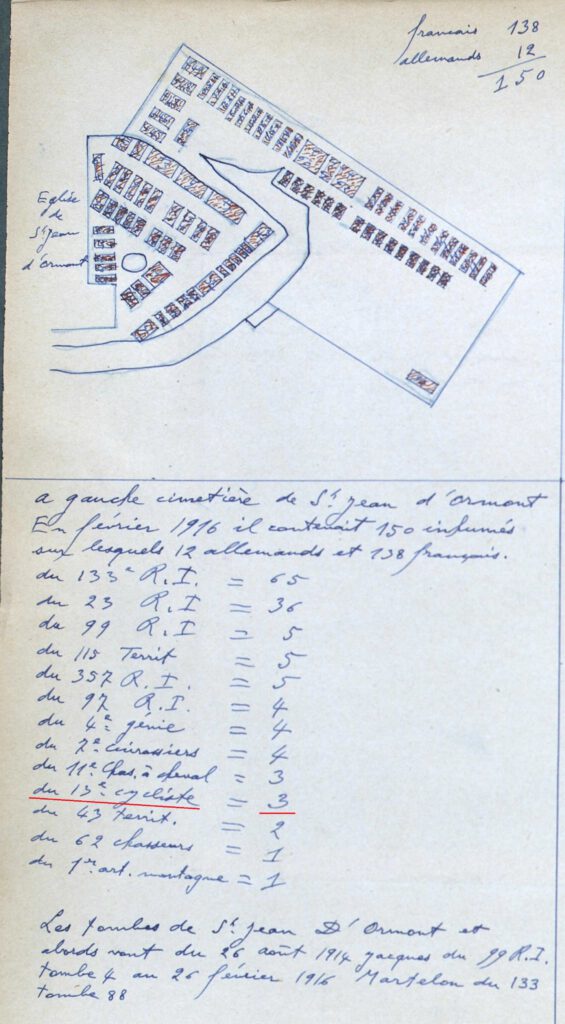 francais 138
allemands 12
150
Eglise
de
St Jean
d'Ormont
a gauche cimetière de St Jean d'Ormont
En février 1916 il contenait 150 inhumés
sur lesquels 12 allemands et 138 français.
du 133e R.I. = 65
du 23 R.I = 36
du 99 R.I = 5
du 115 Territ = 5
du 357 R.I. = 5
du 97 R.I. = 4
du 4e génie = 4
du 7e cuirassiers = 4
du 11e Chas. à cheval = 3
du 13e cycliste = 3
du 43 territ. = 2
du 62 chasseurs = 1
du 1er art. montagne = 1
Les tombes de St Jean D'Ormont et
abords vont du 26 août 1914 jacques du 99 R.I.
tombe 4 au 26 février 1916 Martelon du 133
tombe 88